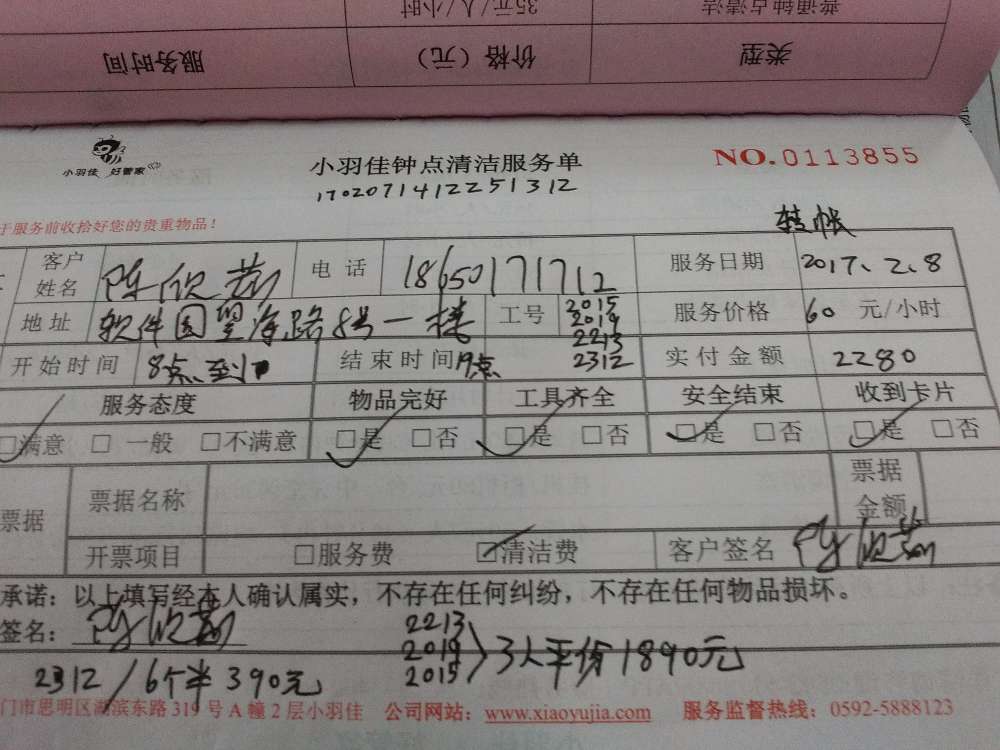 普通钟点清洁 35元/人/小时
类型 价格（元） 服务时间
小羽佳 好管家
小羽佳钟点清洁服务单
NO.0113855
1702071412251312
于服务前收拾好您的贵重物品！
转帐
客户姓名 陈欣 电话 18650171712 服务日期 2017、2、8
地址 软件园望海路8号一楼 工号 2015 2019 2213 2312 服务价格 60 元/小时
开始时间 8点 结束时间 点 实付金额 2280
服务态度 物品完好 工具齐全 安全结束 收到卡片
☑满意 □ 一般 □不满意 ☑是 □否 ☑是 □否 ☑是 □否 ☑是 □否
票据 票据名称 票据金额
开票项目 □服务费 ☑清洁费 客户签名
承诺：以上填写经本人确认属实，不存在任何纠纷，不存在任何物品损坏。
签名：
2213
2019
2015
3人平份1890元
2312/6个半390元
门市思明区湖滨东路319号A幢2层小羽佳 公司网站：www.xiaoyujia.com 服务监督热线：0592-5888123